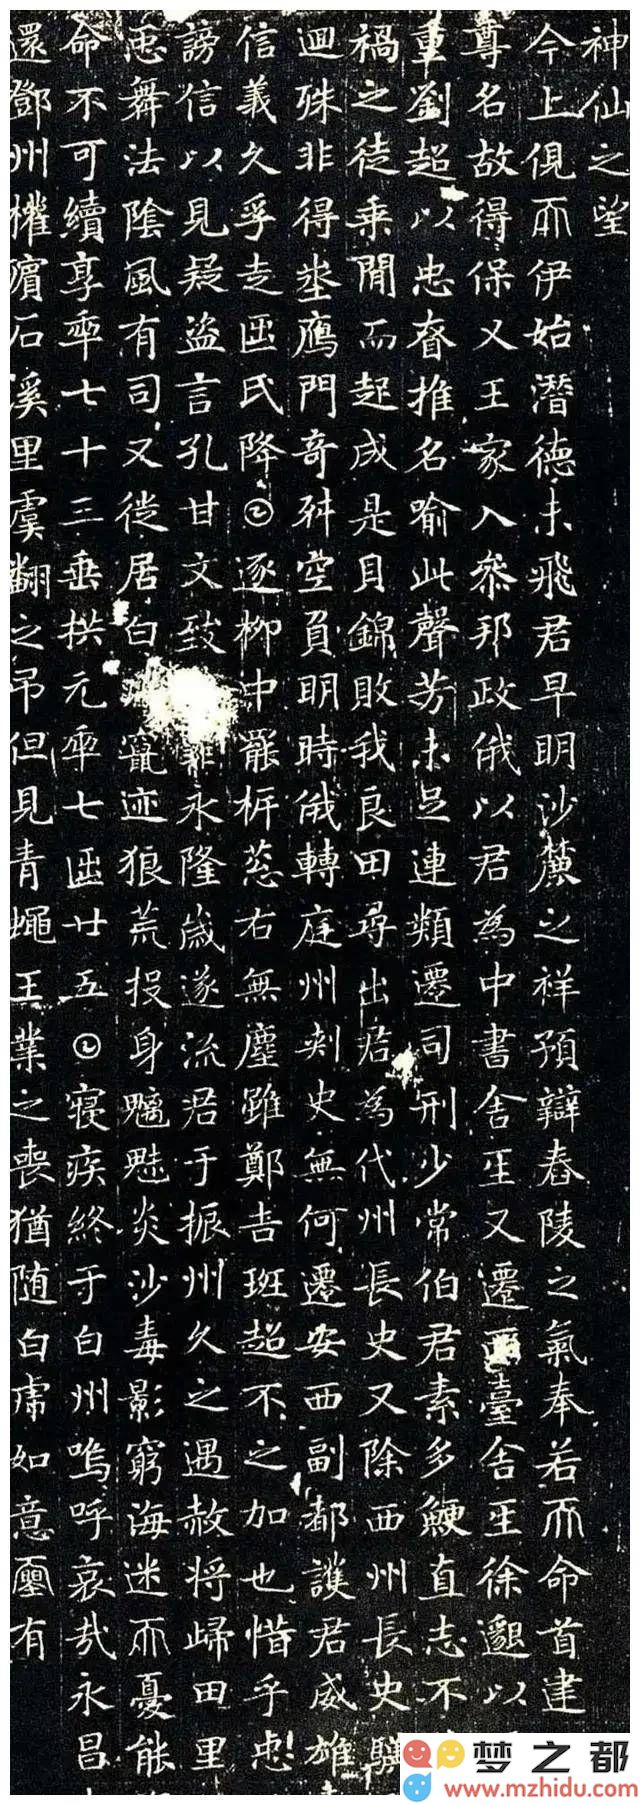 神仙之望
今上俔𠀑伊始潛德未飛君早明沙麓之祥預辯舂陵之氣奉若𠀑命首建
尊名故得保乂王家入參邦政俄以君為中書舍𤯔又遷西臺舍𤯔徐邈以
重劉超以忠昚推名喻此聲芳未足連類遷司刑少常伯君素多鯁直志不
禍之徒乘閒而起成是貝錦敗我良田尋出君為代州長史又除西州長史驥
迥殊非得坐鴈門奇舛空負明時俄轉庭州刾史無何遷安西副都護君威雄
信義久孚走𠥱氏降𡆠逐柳中罷柝葱右無塵雖鄭吉班超不之加也惜乎忠
謗信以見疑盜言孔甘文致罪永隆歲遂流君于振州久之遇赦將歸田里
𢘑舞法陰風有司又徙居白竄迹狼荒投身魑魅炎沙毒影窮海迷𠀑憂能
命不可續享𠡦七十三垂拱元𠡦七𠥱廿五𡆠寢疾終于白州嗚呼哀哉永昌
還鄧州權殯石溪里虞翻之弔但見青蠅王業之喪猶隨白虎如意有
梦之都
www.mzhidu.com